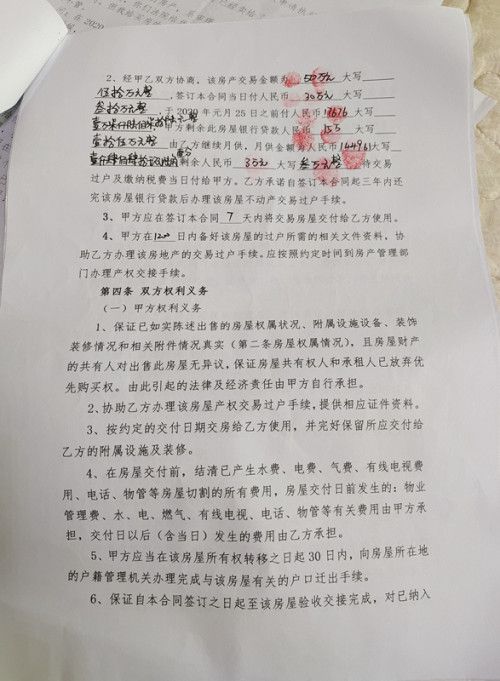 2、经甲乙双方协商，该房产交易金额为 50万元 大写
伍拾万元整，签订本合同当日付人民币 30万元 大写
叁拾万元整，于2020年元月25日之前付人民币 17676 大写
甲方剩余此房屋银行贷款人民币 155 大写
壹拾伍万元 由乙方继续月供，月供金额为人民币 大写
剩余人民币 3万元 大写 叁万元整 待交易
过户及缴纳税费当日付给甲方。乙方承诺自签订本合同起三年内还
完该房屋银行贷款后办理该房屋不动产交易过户手续。
3、甲方应在签订本合同 7 天内将交易房屋交付给乙方使用。
4、甲方在1200日内备好该房屋的过户所需的相关文件资料，协
助乙方办理该房地产的交易过户手续。应按照约定时间到房产管理部
门办理产权交接手续。
第四条 双方权利义务
（一）甲方权利义务
1、保证已如实陈述出售的房屋权属状况、附属设施设备、装饰
装修情况和相关附件情况真实（第二条房屋权属情况），且房屋财产
的共有人对出售此房屋无异议，保证房屋共有权人和承租人已放弃优
先购买权。由此引起的法律及经济责任由甲方自行承担。
2、协助乙方办理该房屋产权交易过户手续，提供相应证件资料。
3、按约定的交付日期交房给乙方使用，并完好保留所应交付给
乙方的附属设施及装修。
4、在房屋交付前，结清已产生水费、电费、气费、有线电视费
用、电话、物管等房屋切割的所有费用，房屋交付日前发生的：物业
管理费、水、电、燃气、有线电视、电话、物管等有关费用由甲方承
担，交付日以后（含当日）发生的费用由乙方承担。
5、甲方应当在该房屋所有权转移之日起30日内，向房屋所在地
的户籍管理机关办理完成与该房屋有关的户口迁出手续。
6、保证自本合同签订之日起至该房屋验收交接完成，对已纳入